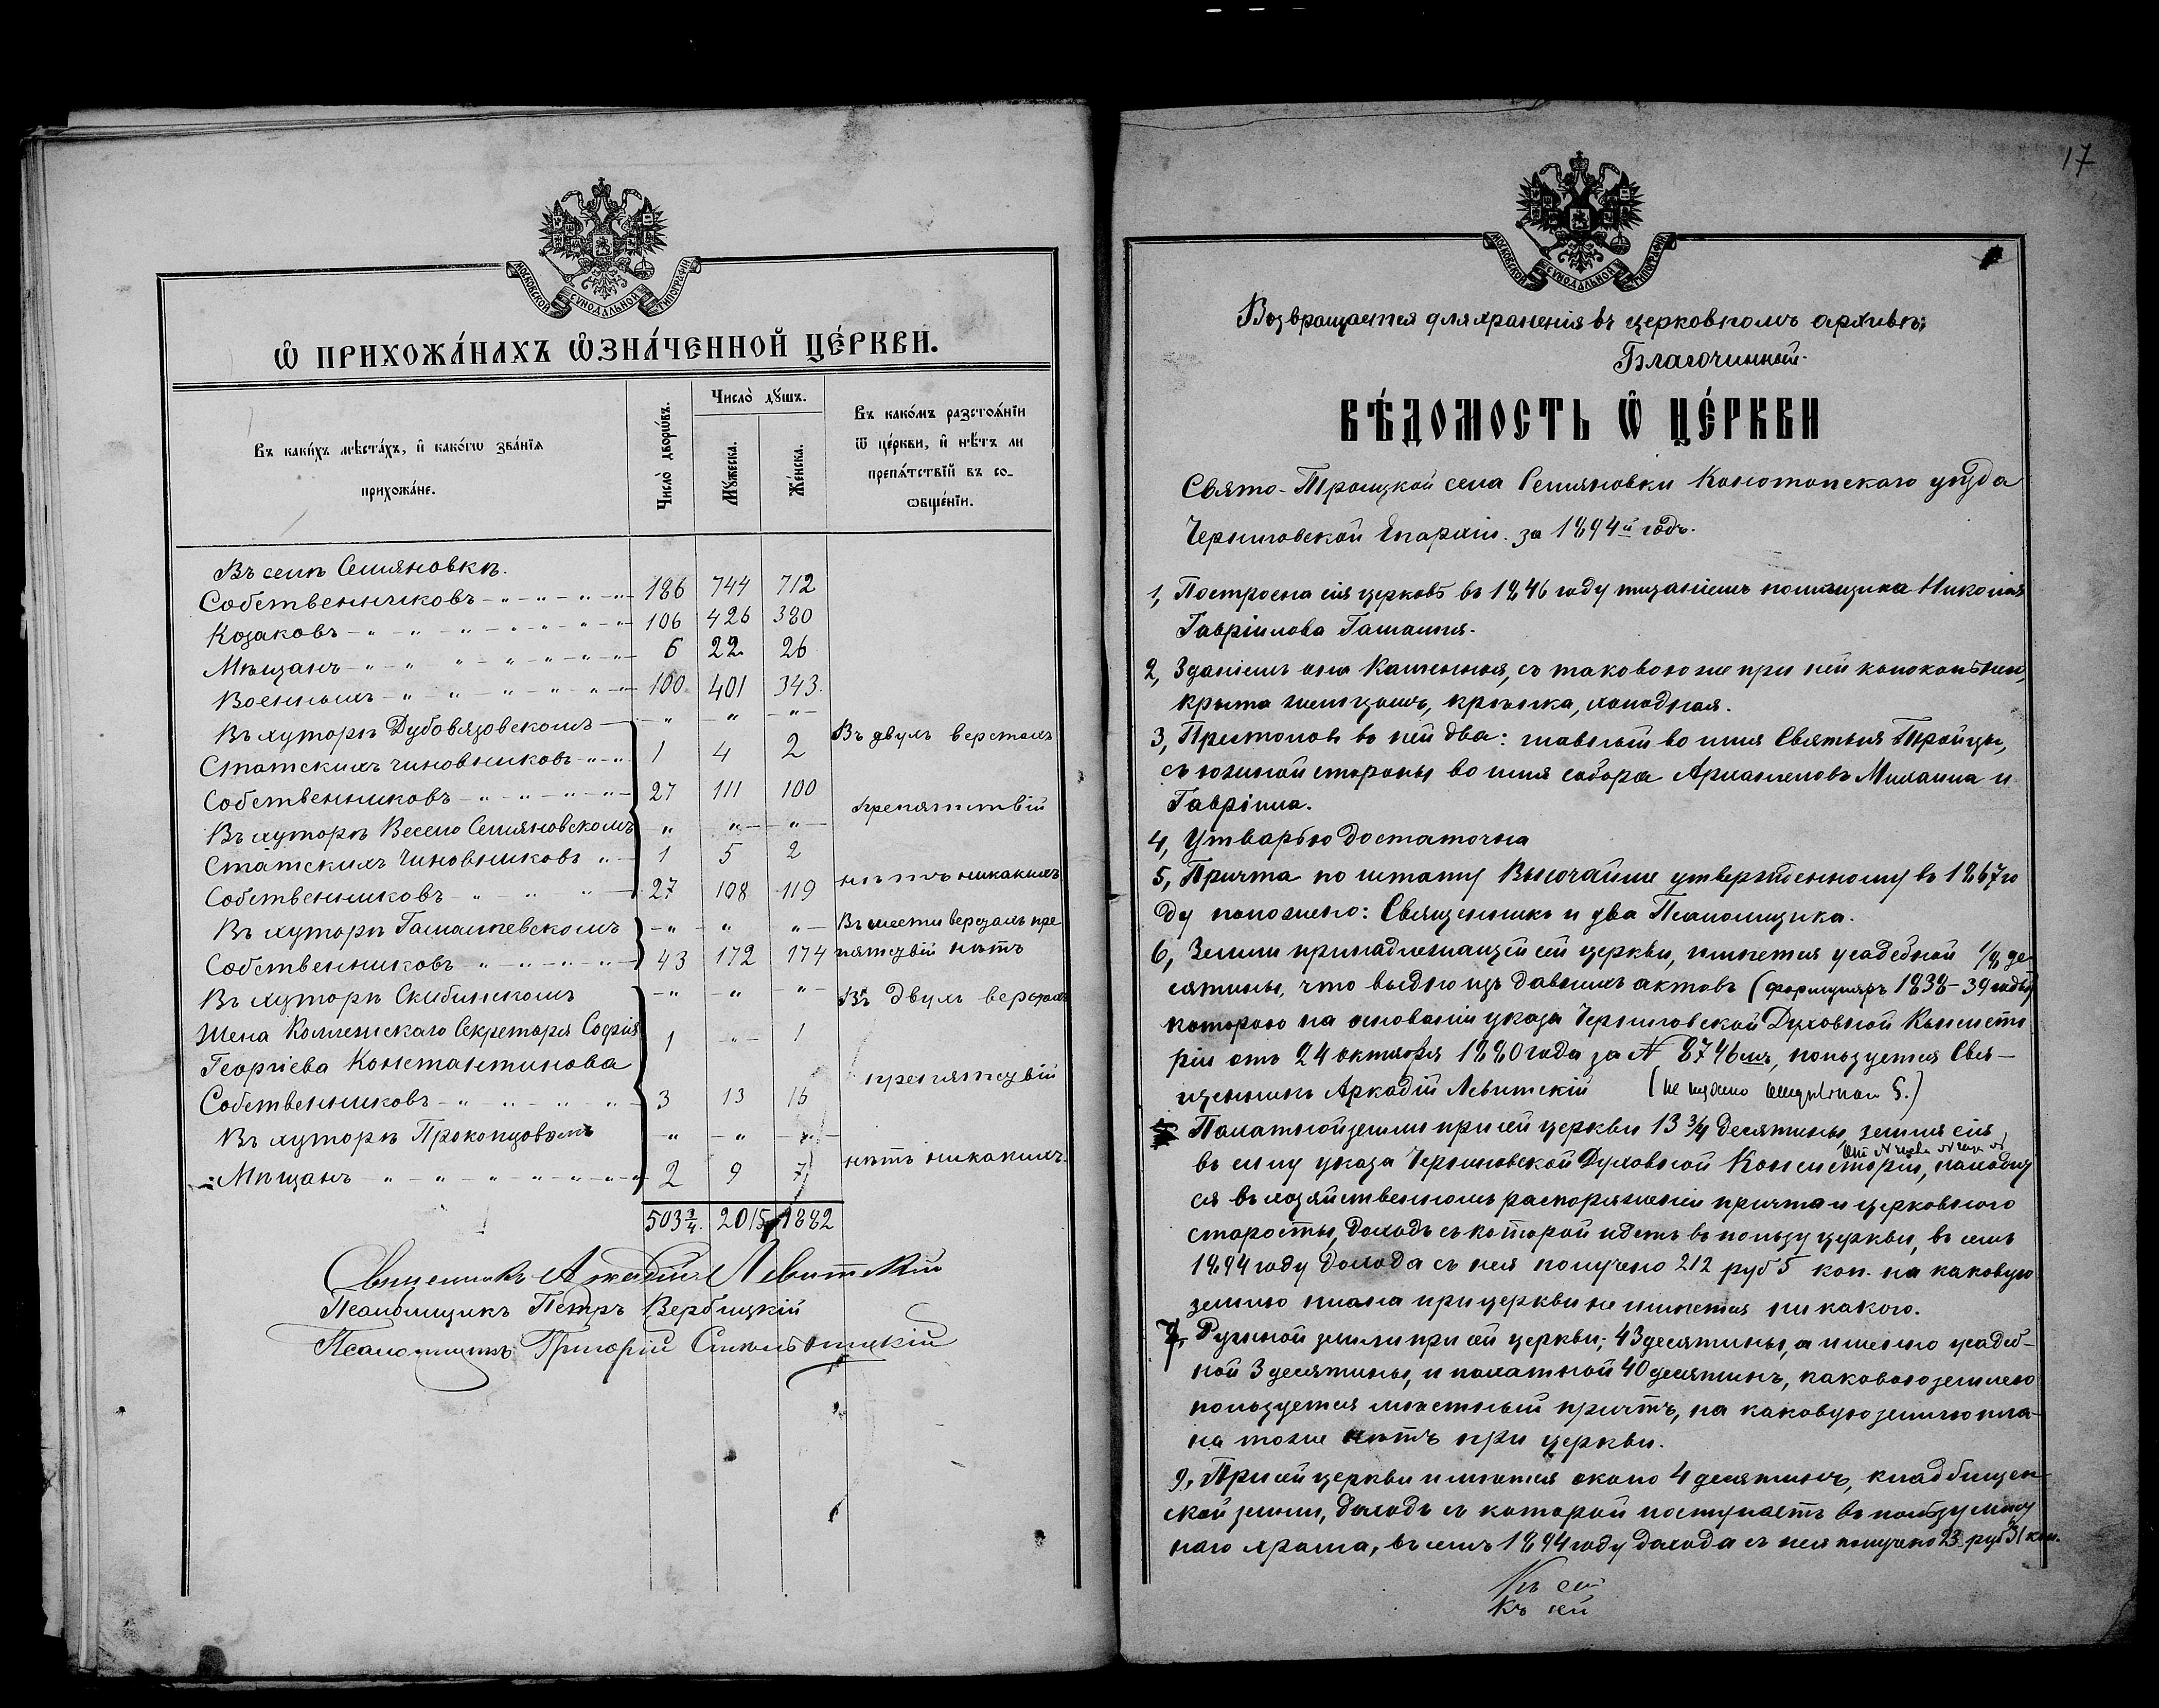 МОСКОВСКОЙ СѴНОДАЛЬНОЙ ТИПОГРАФІИ
Ѿ ПРИХОЖА́НАХЪ Ѡ҆ЗНА́ЧЕННОЙ ЦЕ́РКВИ.
Въ каки́хъ мѣста́хъ, и҆ како́гѡ зва́нїѧ прихожа́не.
Число̀ дворѡ́въ.
Число̀ дꙋ́шъ.
Мꙋ́жеска.
Же́нска.
Въ како́мъ разстоѧ́нїи
ѿ це́ркви, и҆ нѣ́тъ ли
препѧ́тствїй въ со-
ѡбще́нїи.
Въ селѣ Семяновкѣ.
Собственниковъ - " - " - " - " 186 744 712
Козаковъ - " - " - " - " - " 106 426 380
Мѣщанъ - " - " - " - " - " 6 22 26
Военныхъ - " - " - " - " - " 100 401 343
Въ хуторѣ Дубовязовскомъ - " - " - " - Въ двухъ верстахъ
Статскихъ чиновниковъ - " - " 1 4 2
Собственниковъ - " - " - " - " 27 111 100 препятствій
Въ хуторѣ Весело Семяновскомъ " " - " -
Статскихъ Чиновниковъ " - 1 5 2
Собственниковъ - " " " 27 108 119 нѣтъ никакихъ
Въ хуторѣ Гамалѣевскомъ - " - " " - Въ шести верстахъ пре
Собственниковъ - " - " - " - " 43 172 174 пятствій нѣтъ
Въ хуторѣ Скибинскомъ - " - " " - Въ двухъ верстахъ
Жена Коллежскаго Секретаря Софія 1 - " - 1
Георгіева Константинова препятствій
Собственниковъ - " - " - " - " 3 13 16
Въ хуторѣ Прокопцовомъ - " - " - " -
Мѣщанъ - " - " - " - " - " 2 9 7 нѣтъ никакихъ.
503 3/4. 2015 1882
Священникъ Аркадій Левитскій
Псаломщикъ Петръ Вербицкій
Псаломщикъ Григорій
17
МОСКОВСКОЙ СѴНОДАЛЬНОЙ ТИПОГРАФІИ
Возвращается для храненія въ церковномъ архивѣ:
Благочинный.
ВѢ́ДОМОСТЬ Ѿ ЦЕ́РКВИ
Свято-Троицкой села Семяновки Конотопскаго уѣзда
Черниговской Епархіи за 1894й годъ.
1, Построена сія церковь въ 1846 году тщаніемъ помѣщика Николая
Гавріилова Гамалѣя.
2, Зданіемъ она Каменная, съ таковою же при ней колокольнею,
крыта желѣзомъ, крѣпка, холодная.
3, Престоловъ въ ней два: главный во имя Святыя Тройцы,
съ южной стороны во имя собора Архангеловъ Михаила и
Гавріила.
4, Утварью достаточна
5, Причта по штату Высочайше утвержденному въ 1867 го
ду положено: Священникъ и два Псаломщика.
6, Земли принадлежащей сей церкви, имѣется усадебной 1/8 де
сятины, что видно изъ давнихъ актовъ (формуляръ 1838-39 годъ)
которою на основаніи указа Черниговской Духовной Консисто
ріи отъ 24 октября 1880 года за N 8746мъ, пользуется Свя-
щенникъ Аркадій Левитскій (не нужно)
Пахатной земли при сей церкви 13 3/4 десятины, земля сія
въ силу указа Черниговской Духовной Консисторіи, находит
ся въ хозяйственномъ распоряженіи причта и церковнаго
старосты, доходъ съ которой идетъ въ пользу церкви, въ семъ
1894 году дохода съ нея получено 212 руб 5 коп. на каковую
землю плана при церкви не имѣется никакого.
7, Ружной земли при сей церкви; 43 десятины, а именно усадеб-
ной 3 десятины, и пахатной 40 десятинъ, каковою землею
пользуется мѣстный причтъ, на каковую землю пла-
на тоже нѣтъ при церкви.
9, При сей церкви имѣется около 4 десятинъ, кладбищен-
ской земли, доходъ съ которой поступаетъ въ пользу мѣст
наго храма, въ семъ 1894 году дохода съ нея получено 23 руб 31 коп.
Къ сей
Къ сей